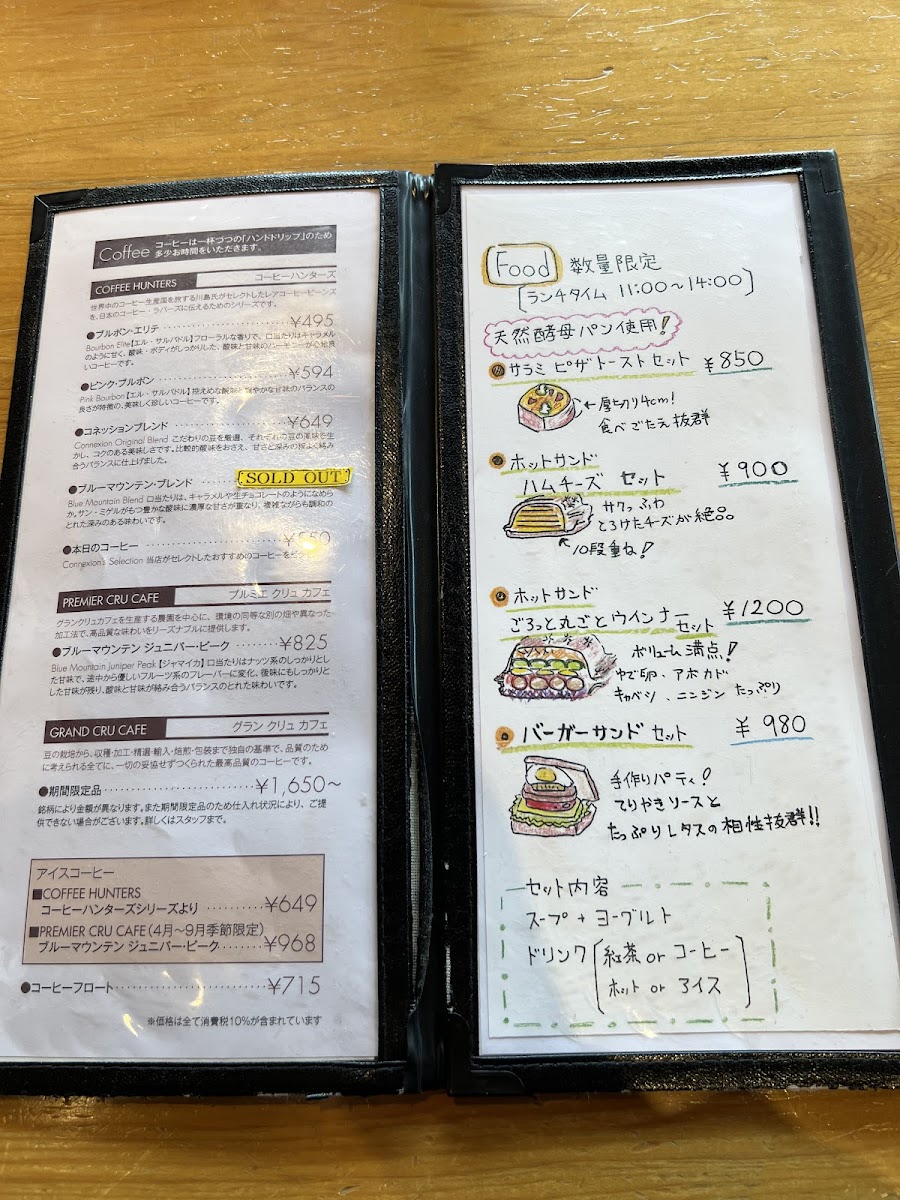 Coffee コーヒーは一杯づつの「ハンドドリップ」のため
多少お時間をいただきます。
COFFEE HUNTERS コーヒーハンターズ
世界中のコーヒー生産国を旅する川島氏がセレクトしたレアコーヒービーンズ
を、日本のコーヒー・ラバーズに伝えるためのシリーズです。
●ブルボン・エリテ ¥495
Bourbon Elite【エル・サルバドル】フローラルな香りで、口当たりはキャラメル
のように甘く、酸味・ボディがしっかりした、酸味と甘味のハーモニーが心地良
いコーヒーです。
●ピンク・ブルボン ¥594
Pink Bourbon【エル・サルバドル】控えめな酸味と爽やかな甘味のバランスの
良さが特徴の、美しく珍しいコーヒーです。
●コネッションブレンド ¥649
Connexion Original Blend こだわりの豆を厳選、それぞれの豆の美味を生
かし、コクのある美味しさです。比較的酸味をおさえ、甘さと深みの程よく絡み
合うバランスに仕上げました。
●ブルーマウンテン・ブレンド SOLD OUT
Blue Mountain Blend 口当たりは、キャラメルや生チョコレートのようになめら
か。サン・ミゲルがもつ豊かな酸味に濃厚な甘さが重なり、複雑ながらも調和の
とれた深みのある味わいです。
●本日のコーヒー ¥550
Connexion's Selection 当店がセレクトしたおすすめのコーヒーを
PREMIER CRU CAFE プルミエ クリュ カフェ
グランクリュカフェを生産する農園を中心に、環境の同等な別の畑や異なった
加工法で、高品質な味わいをリーズナブルに提供します。
●ブルーマウンテン ジュニパー・ピーク ¥825
Blue Mountain Juniper Peak【ジャマイカ】口当たりはナッツ系のしっかりとし
た甘味で、途中から優しいフルーツ系のフレーバーに変化、後味にもしっかりと
した甘味が残り、酸味と甘味が絡み合うバランスのとれた味わいです。
GRAND CRU CAFE グラン クリュ カフェ
豆の栽培から、収穫・加工・精選・輸入・焙煎・包装まで独自の基準で、品質のため
に考えられる全てに、一切の妥協せずつくられた最高品質のコーヒーです。
●期間限定品 ¥1,650～
銘柄により金額が異なります。また期間限定品のため仕入れ状況により、ご提
供できない場合がございます。詳しくはスタッフまで。
アイスコーヒー
■COFFEE HUNTERS
コーヒーハンターズシリーズより ¥649
■PREMIER CRU CAFE（4月～9月季節限定）
ブルーマウンテン ジュニパー・ピーク ¥968
●コーヒーフロート ¥715
※価格は全て消費税10%が含まれています
Food 数量限定
[ランチタイム 11:00～14:00]
天然酵母パン使用!
サラミ ピザトーストセット ¥850
←厚切り4cm!
食べごたえ抜群
ホットサンド
ハムチーズ セット ¥900
サクっふわ
とろけたチーズが絶品
10段重ね!
ホットサンド
ごろっと丸ごとウインナーセット ¥1200
ボリューム満点!
ゆで卵・アボカド
キャベツ、ニンジン たっぷり
バーガーサンド セット ¥980
手作りパティ!
てりやきソースと
たっぷりレタスの相性抜群!!
セット内容
スープ + ヨーグルト
ドリンク [紅茶 or コーヒー
ホット or アイス]